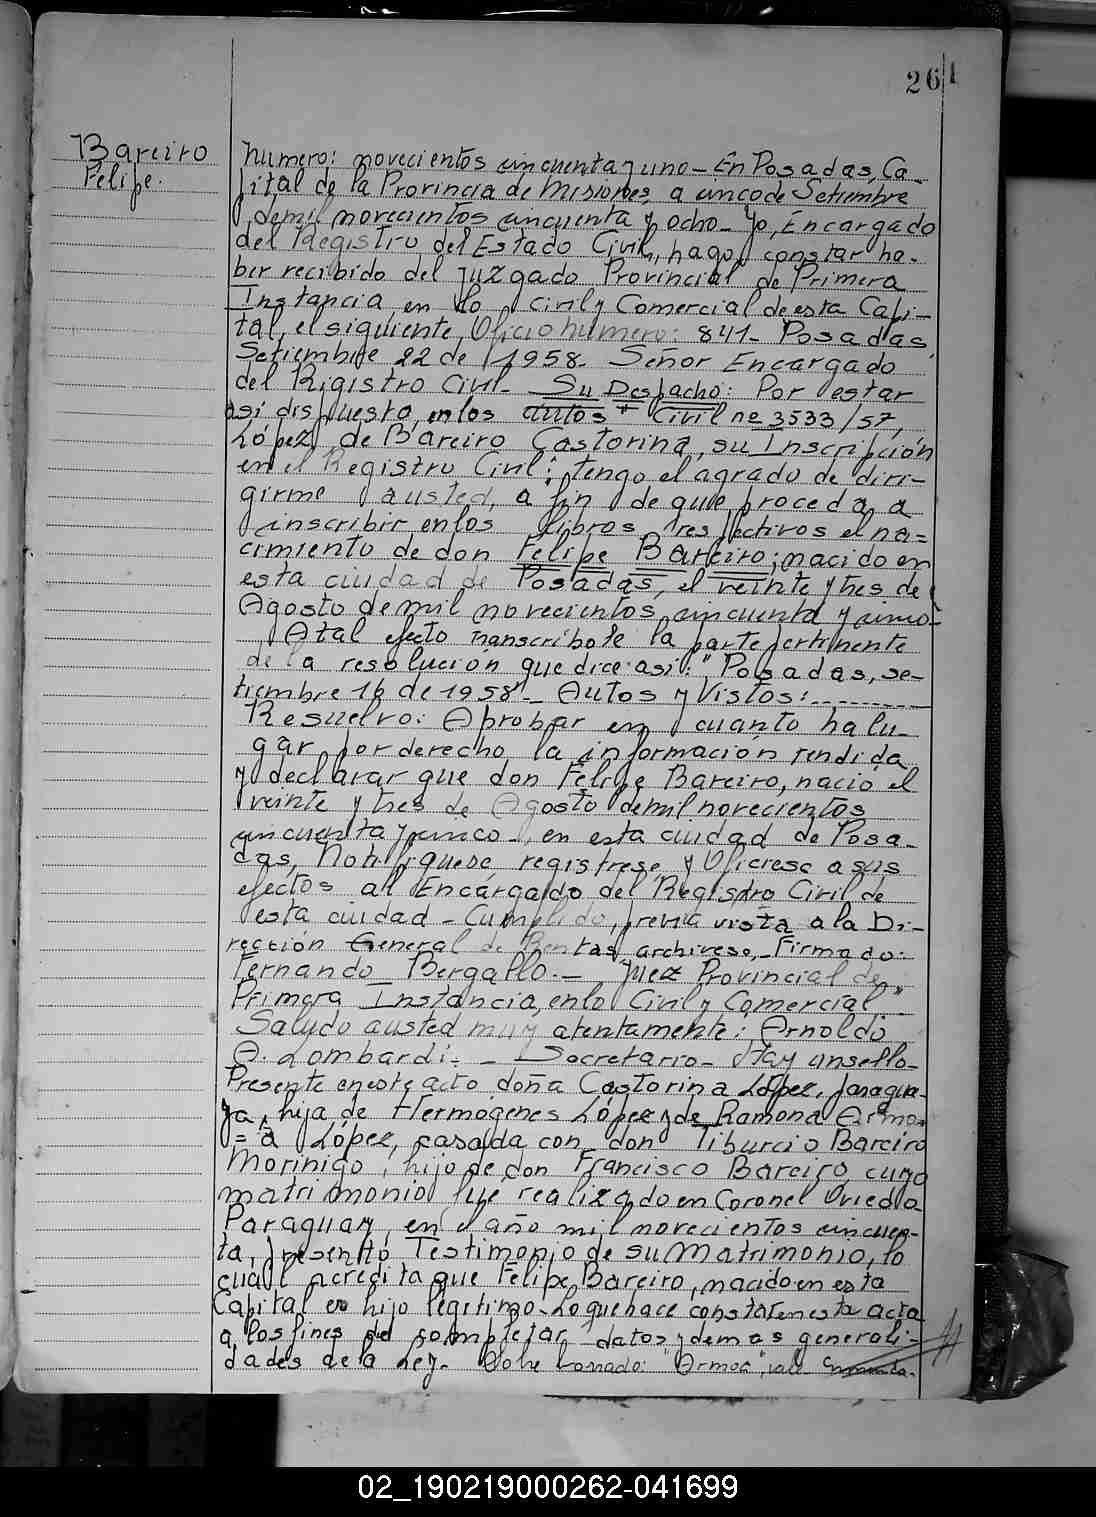 261
Bareiro
Felipe.
Numero: novecientos cincuenta y uno - En Posadas, Ca-
pital de la Provincia de Misiones, a cinco de Setiembre
de mil novecientos cincuenta y ocho - Yo, Encargado
del Registro del Estado Civil, hago constar ha-
ber recibido del Juzgado Provincial de Primera
Instancia en lo Civil y Comercial de esta Capi-
tal, el siguiente, Oficio número: 841 - Posadas,
Setiembre 22 de 1958. Señor Encargado
del Registro Civil - Su Despacho: Por estar
asi dispuesto, en los autos Civil nº 3533/57,
López de Bareiro Castorina, su Inscripción
en el Registro Civil; tengo el agrado de diri-
girme a usted, a fin de que proceda a
inscribir en los libros respectivos el na=
cimiento de don Felipe Bareiro; nacido en
esta ciudad de Posadas, el veinte y tres de
Agosto de mil novecientos cincuenta y cinco-
A tal efecto transcribole la parte pertinente
de la resolución que dice asi: "Posadas, se-
tiembre 16 de 1958 - Autos y Vistos:
Resuelvo: Aprobar en cuanto ha lu-
gar por derecho la información rendida
y declarar que don Felipe Bareiro, nació el
veinte y tres de Agosto de mil novecientos
cincuenta y cinco - en esta ciudad de Posa-
das, Notifiquese, registrese y Oficiese a sus
efectos al Encargado del Registro Civil de
esta ciudad - Cumplido, previa vista a la Di-
rección General de Rentas, archivese - Firmado:
Fernando Bergallo. - Juez Provincial de
Primera Instancia, en lo Civil y Comercial"
Saludo a usted muy atentamente: Arnoldo
A. Lombardi. - Secretario - Hay un sello-
Presente en este acto doña Castorina López, paragua-
ya, hija de Hermógenes López y de Ramona Armoa
= a López, casada con don Tiburcio Bareiro
Morinigo, hijo de don Francisco Bareiro, cuyo
matrimonio fué realizado en Coronel Oviedo
Paraguay, en el año mil novecientos cincuen-
ta, presentó Testimonio de su Matrimonio, lo
cual acredita que Felipe Bareiro, nacido en esta
Capital es hijo legitimo - Lo que hace constar en esta acta
a los fines de completar datos y demas generali-
dades de la Ley - Sobre borrado: "Armoa", vale
02_190219000262-041699